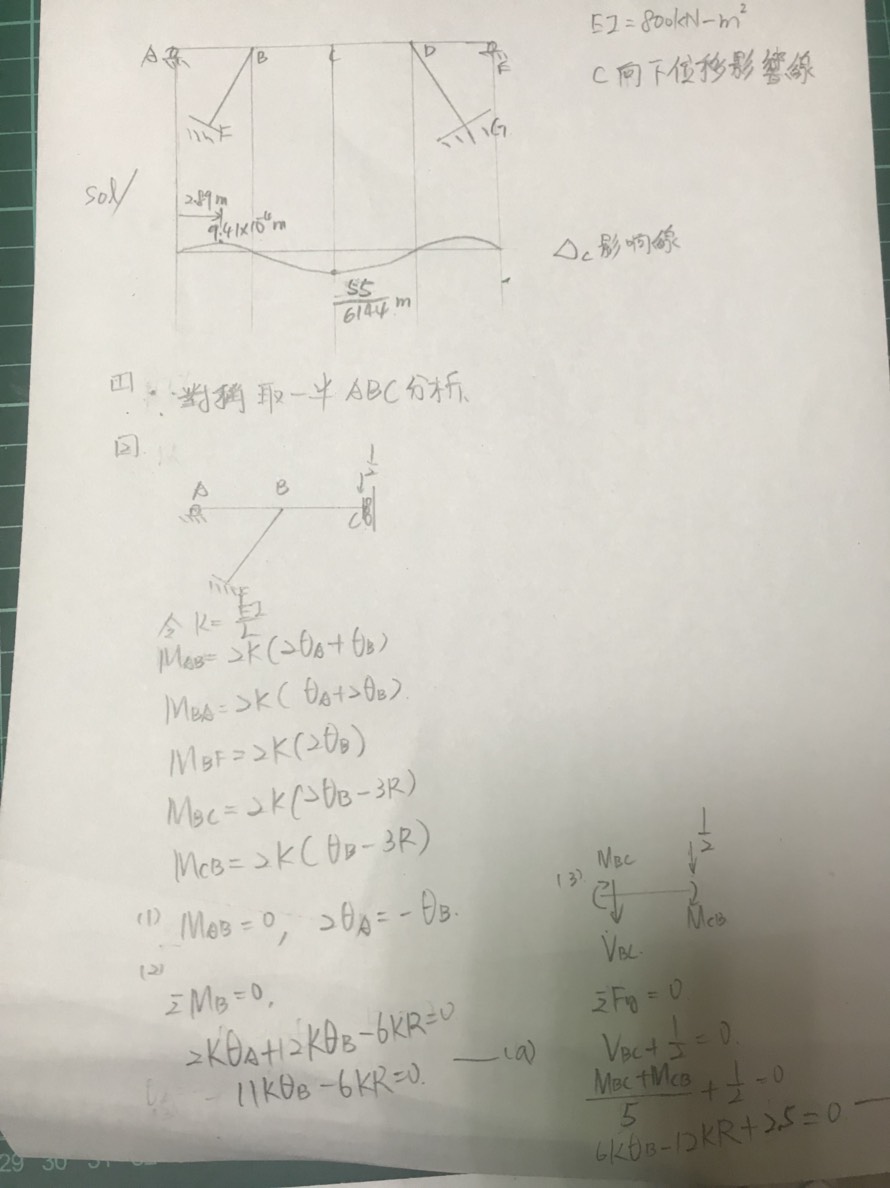 EI=800kN-m²
C向下位移影響線
A B C D E
F G
sol/
2.89m
9.41×10⁻⁴m
55/6144 m
Δc影響線
[1] ∵對稱取一半ABC分析
[2]
A B C 1/2
F
令K=EI/L
M_AB=2K(2θ_A+θ_B)
M_BA=2K(θ_A+2θ_B)
M_BF=2K(2θ_B)
M_BC=2K(2θ_B-3R)
M_CB=2K(θ_B-3R)
(1) M_AB=0, 2θ_A=-θ_B.
(2)
ΣM_B=0,
2Kθ_A+12Kθ_B-6KR=0
11Kθ_B-6KR=0. —(a)
(3) M_BC 1/2
M_CB
V_BC
ΣF_y=0
V_BC+1/2=0.
(M_BC+M_CB)/5+1/2=0
6Kθ_B-12KR+2.5=0 —
29 30 31